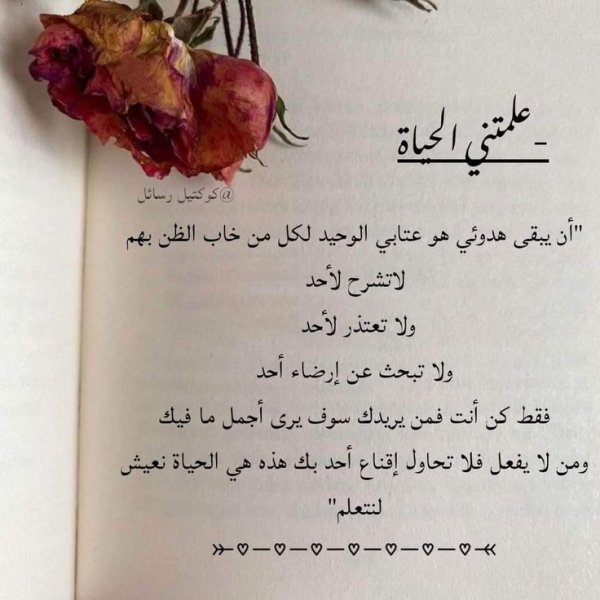 - علمتني الحياة
@كوكتيل رسائل
"أن يبقى هدوئي هو عتابي الوحيد لكل من خاب الظن بهم
لاتشرح لأحد
ولا تعتذر لأحد
ولا تبحث عن إرضاء أحد
فقط كن أنت فمن يريدك سوف يرى أجمل ما فيك
ومن لا يفعل فلا تحاول إقناع أحد بك هذه هي الحياة نعيش
لنتعلم"